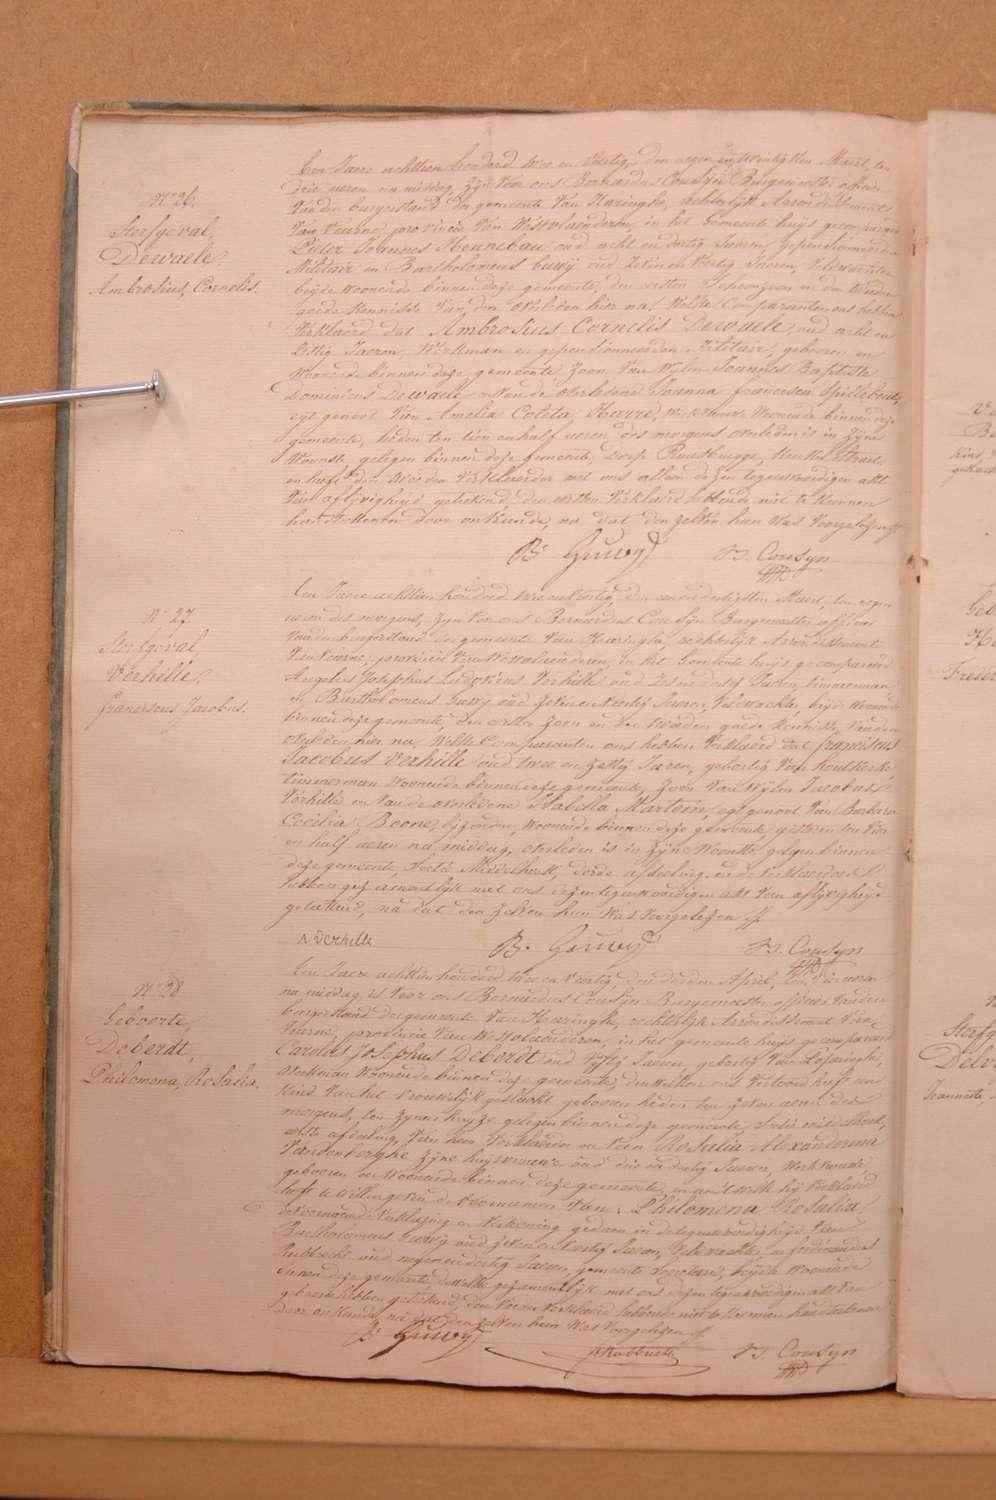 N° 26.
Sterfgeval,
Dewaele,
Ambrosius, Cornelis.
Een Jaere achttien honderd twee en Veertig, den negen en twentigsten Maert, ten
drie ueren na middag, zyn voor ons Bernardus Cousyn Burgemeester officier
Van den burgerstand der gemeente Van Haringhe, rechterlyk Arrondissement
Van Veurne, provincie Van Westvlaenderen, in het Gemeente huys gecompareerd
Pieter Joannes Hennebau, oud acht en dertig Jaeren, gepensionneerden
Militair en Bartholomeus Guwy oud zeven en Veertig Jaeren, Veldwachter
beyde woonende binnen deze gemeente, den eersten en den tweeden
goede Kennisse Van den overleden hier na, Welke Comparanten ons hebben
Verklaerd dat Ambrosius Cornelis Dewaele, oud acht en
Jaeren, Werkman en gepensionneerden Militair, geboren en
Woonende binnen deze gemeente, zoon Van Wylen Joannes Baptiste
Dominicus Dewaele en Van de Overledene Joanna francisca Spillebout,
egt genoot Van Amelia Coleta Harre, Woonende binnen deze
gemeente, heden ten tien en half ueren des morgens overleden is in zyne
Woonste gelegen binnen deze gemeente, Dorp Rousbrugge, Straet,
en heeft den tweeden Verklaerder met ons alleen dezen tegenwoordigen akt
Van aflyvigheyd geteekend, den eersten Verklaerd hebbende niet te Konnen
handteekenen door onkunde, na dat den zelven hun Was Voorgelezen
B. Guwy B. Cousyn
N° 27
Sterfgeval,
Verhille,
franciscus Jacobus.
Een Jaere achttien honderd twee en Veertig, den een en dertigsten Maert, ten negen
ueren des morgens, zyn voor ons Bernardus Cousyn Burgemeester officier
Van den burgerstand der gemeente Van Haringhe, rechterlyk Arrondissement
Van Veurne, provincie Van Westvlaenderen, in het Gemeente huys gecompareerd
Angelus Josephus Ludovicus Verhille oud dertig Jaeren, timmerman
en Bartholomeus Guwy oud zeven en Veertig Jaeren, Veldwachter, beyde Woonende
binnen deze gemeente, den eersten Zoon en den tweeden goede kennisse Van den
overleden hier na, Welke Comparanten ons hebben Verklaerd dat franciscus
Jacobus Verhille oud twee en Zestig Jaeren, geboortig Van houtkerke
timmerman Woonende binnen deze gemeente, Zoon Van Wylen Jacobus
Verhille en Van de overledene Isabella Marteen, egt genoot Van Barbara
Cecilia Boone, byzondere, Woonende binnen deze gemeente, gisteren ten Vier
en half ueren na middag, overleden is in Zyne Woonste gelegen binnen
deze gemeente, Sectie Middelhoek, derde afdeeling, en de Verklaerders
hebben gezamentlyk met ons dezen tegenwoordigen akt Van aflyvigheyd
geteekend, na dat den Zelven hun Was Voorgelezen
A Verhille B. Guwy B. Cousyn
N° 28
Geboorte,
Deberdt,
Philomena, Rosalia.
Een Jaere achttien honderd twee en Veertig, den derden April, ten drie ueren
na middag, is Voor ons Bernardus Cousyn Burgemeester officier Van den
burgerstand der gemeente Van Haringhe, rechterlyk Arrondissement Van
Veurne, provincie Van Westvlaenderen, in het gemeente huys gecompareerd
Carolus Josephus Deberdt oud Vyftig Jaeren, geboortig Van
Werkman Woonende binnen deze gemeente, den Welken ons Vertoond heeft een
Kind Van het Vrouwelyk geslacht geboren heden ten zeven ueren des
morgens, ten zynen huyze gelegen binnen deze gemeente, Sectie
eerste afdeeling, Van hem Verklaerder en Van Rosalia Alexandrina
Vandenberghe zyne huysvrouwe oud drie en dertig Jaeren, Werkvrouw,
geboren en Woonende binnen deze gemeente, en aen 't welk hy Verklaerd
heeft te willen geven de Voornaemen Van Philomena Rosalia,
de Voornoemde Verklaering en Vertooning gedaen in de tegenwoordigheyd Van
Bartholomeus Guwy oud zeven en Veertig Jaeren, Veldwachter, en ferdinandus
Rubbrecht oud negen en dertig Jaeren, gemeente Secretaris, beyde Woonende
binnen deze gemeente, dewelke gezamentlyk met ons dezen tegenwoordigen akt Van
geboorte hebben geteekend, den Vader Verklaerd hebbende niet te Konnen handteekenen
door onkunde, na dat den zelven hun Was Voorgelezen
B. Guwy Rubbrecht B. Cousyn
Sterfg